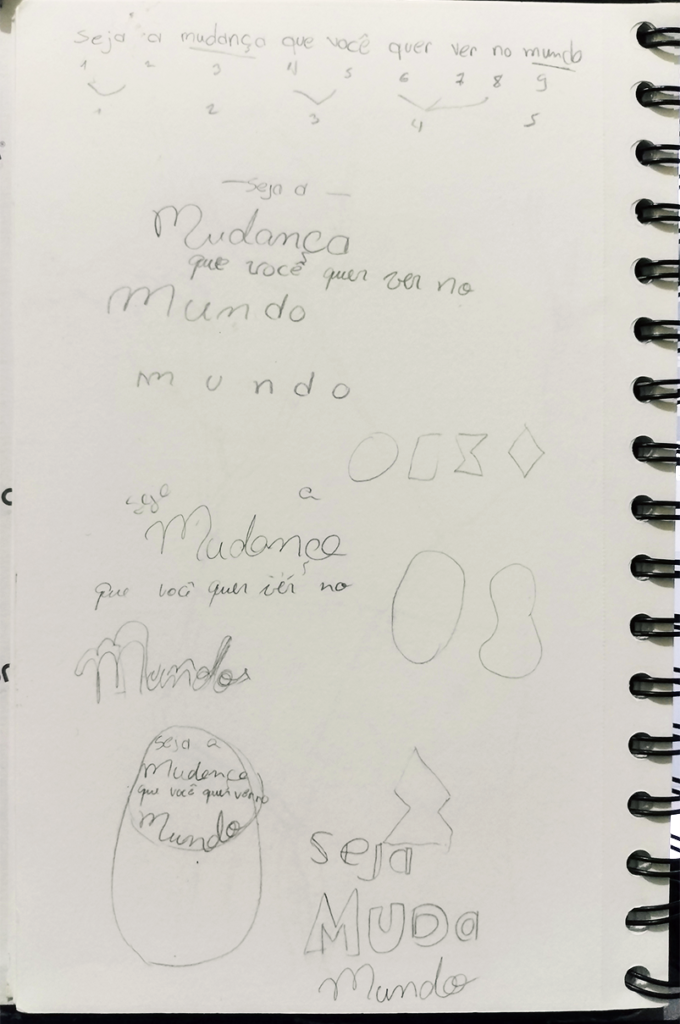 seja a mudança que você quer ver no mundo
1 2 3 4 5 6 7 8 9
1 2 3 4 5
seja a
Mudança
que você quer ver no
Mundo
mundo
seja a
Mudança
que você quer ver no
Mundo
seja a
Mudança
que você quer ver no
Mundo
seja
MUDA
Mundo